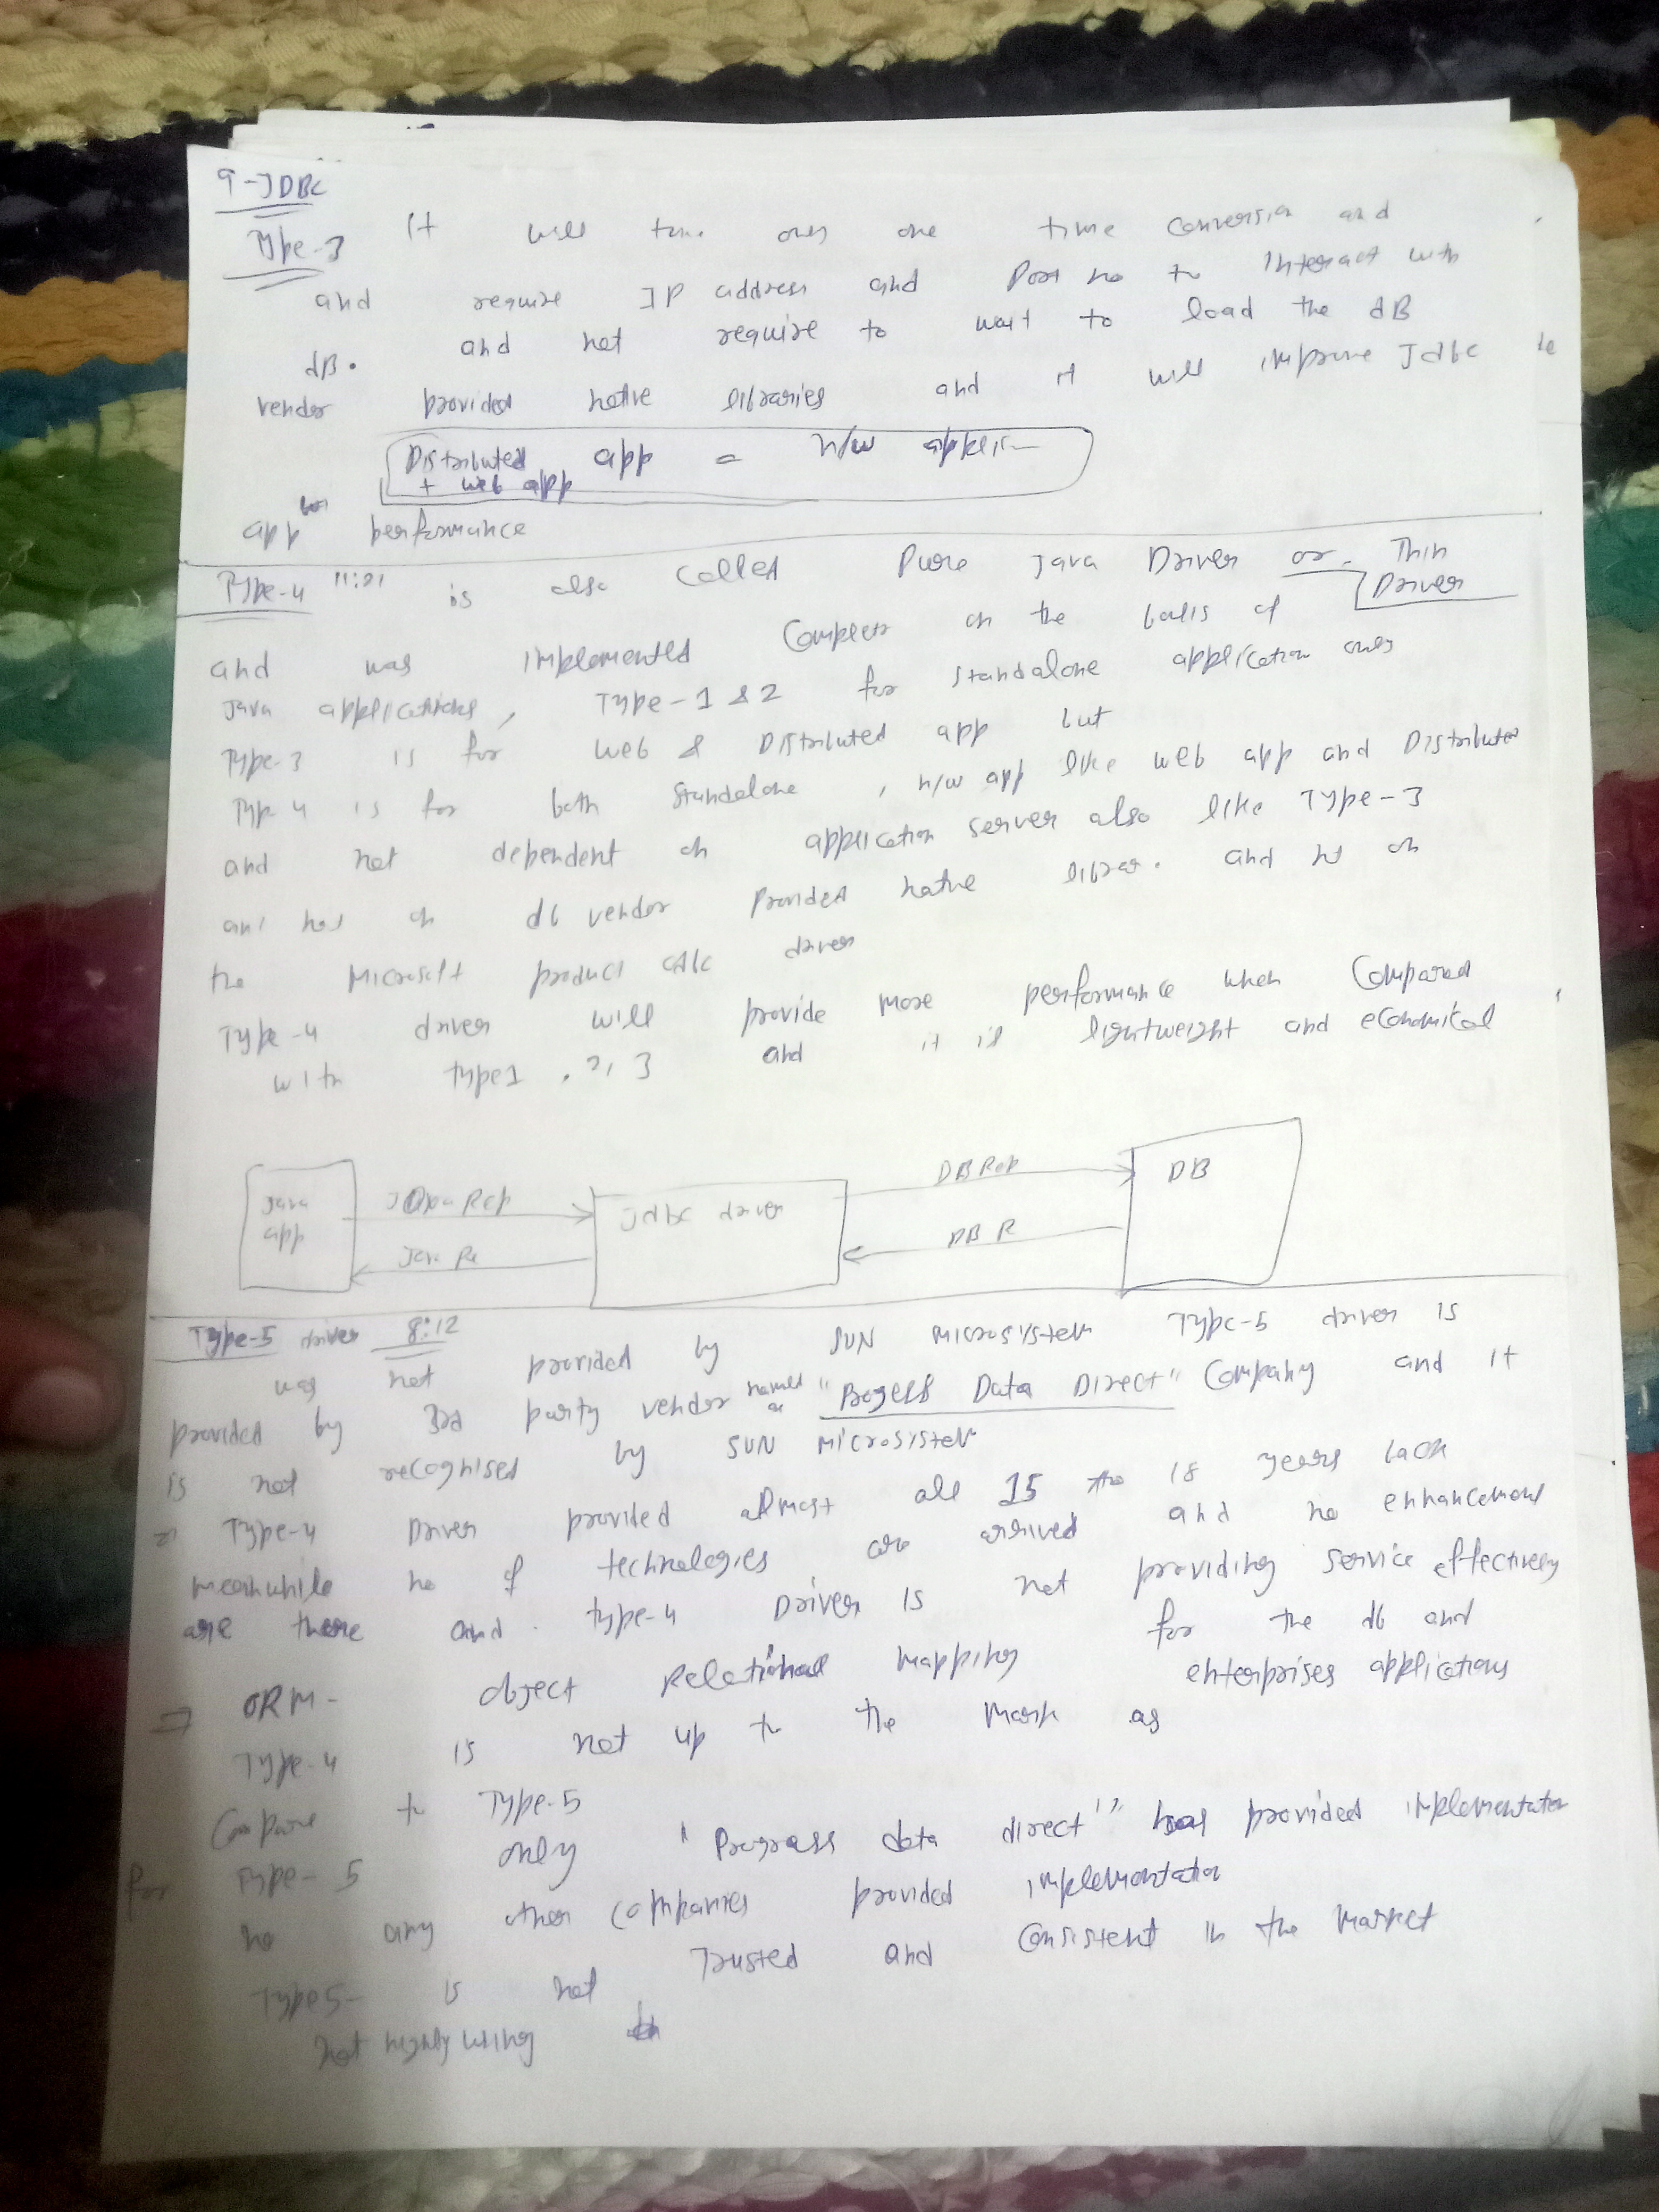 9-JDBC
Type-3 It will take only one time conversion and
and require IP address and Port no to Interact with
dB. and not require to wait to load the dB
vendor provided native libraries and it will improve Jdbc
Distributed app = n/w applic
+ web app
app performance
Type-4 11:21 is also called Pure Java Driver or Thin
Driver
and was implemented Complete on the basis of
Java applications, Type-1 & 2 for standalone application only
Type-3 is for web & Distributed app but
Type 4 is for both Standalone, n/w app like web app and Distributed
and not dependent on application server also like Type-3
and not on db vendor provided native librar. and not on
the Microsoft product driver
Type-4 driver will provide more performance when Compared
with type1, 2, 3 and it is lightweight and economical
Java
app
Java Rep
Java Re
Jdbc driver
DB Rep
DB R
DB
Type-5 driver 8:12
was not provided by SUN microsistem Type-5 driver is
provided by 3rd party vendor named as "Progess Data Direct" Company and it
is not recognised by SUN Microsistem
=> Type-4 Driver provided almost all 15 to 18 years back
meanwhile no of technologies are arrived and no enhancement
are there and. type-4 Driver is not providing service effectively
=> ORM- object Relational mapping for the db and
enterprises applications
Type-4 is not up to the mark as
Compare to Type-5
only "Prograss data direct" has provided implementation
for Type-5
no any other companies provided implementation
Type5- is not Trusted and Consistent in the market
not highly using